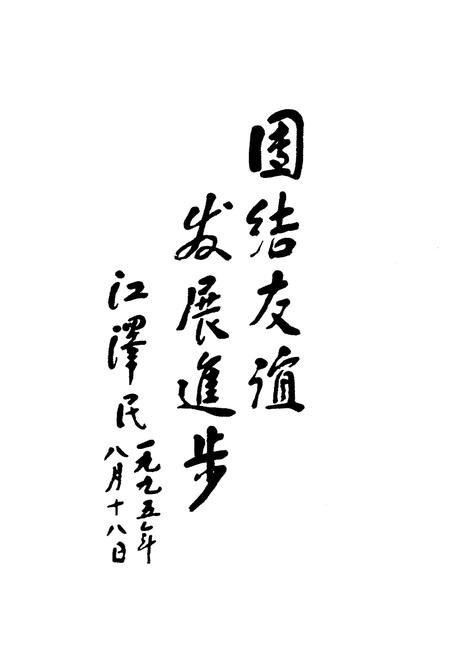 團结友谊
发展進步
江澤民
一九九五年
八月十八日